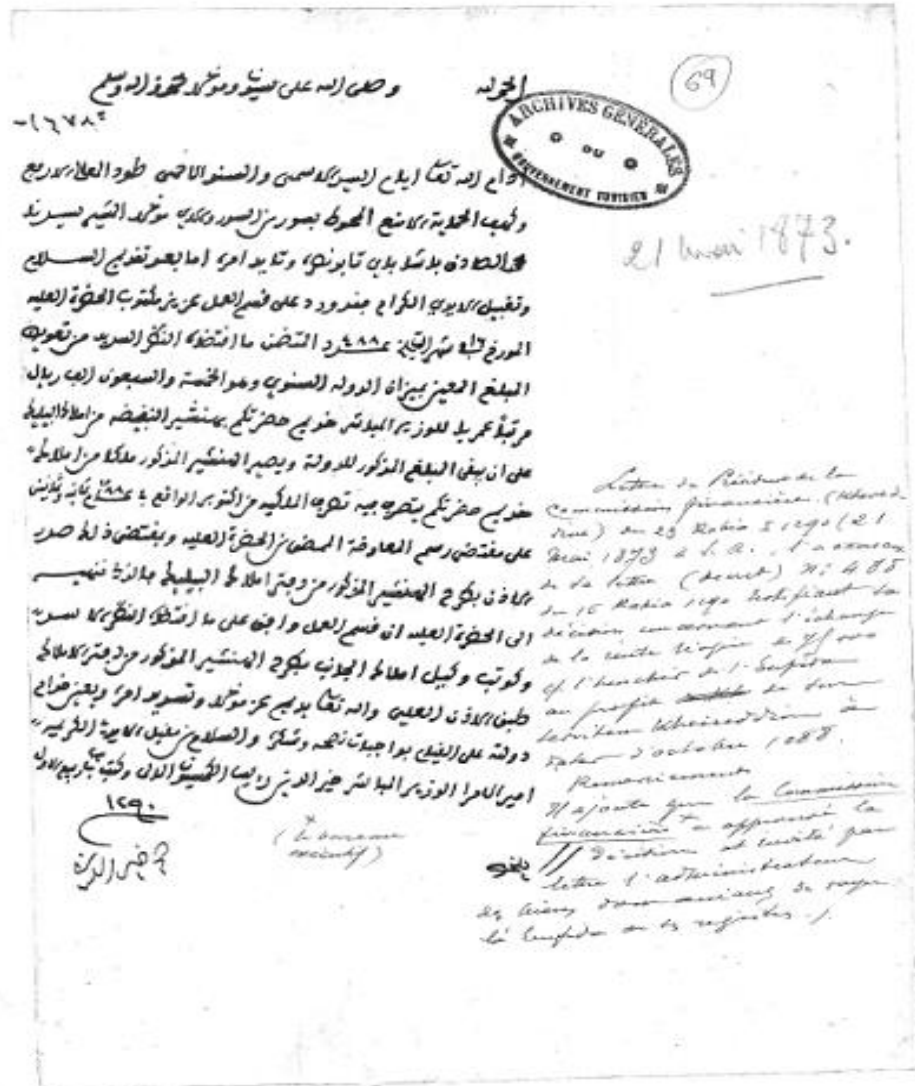 الحمد لله وصلى الله على سيدنا ومولانا محمد وآله وسلم
69
ARCHIVES GÉNÉRALES
DU
GOUVERNEMENT TUNISIEN
21 mai 1873.
أدام الله تعالى أيام السيد الاسمى والسند الأحمى طود العلا الارفع
وكهف الحماية الامنع المحوط بسور من السور والآي مولانا المشير سيدنا
محمد الصادق باشا باي تأيد امره اما بعد تقديم السلام
وتقبيل الايدي الكرام فقد ورد على قسم العمل عزيز مكتوب الحضرة العلية
المورخ في شهر التاريخ عدد ٤٨٨ المتضمن ما اقتضاه النظر السديد من تعويض
المبلغ المعين بميزان الدولة السنوي وهو الخمسة والسبعون الف ريال
مرتبا عمريا للوزير المباشر خديم حضرتكم بهنشير النفيضة من املاك البيليك
على ان يبقى المبلغ المذكور للدولة ويصير الهنشير المذكور ملكا من املاك
خديم حضرتكم يتصرف فيه تصرف المالكية من اكتوبر الواقع في
على مقتضى رسم المعاوضة الممضى من الحضرة العلية وبمقتضى ذلك صدر
الاذن بطرح الهنشير المذكور من دفتر املاك البيليك
الى الحضرة العلية ان قسم العمل وافق على ما اقتضاه النظر السديد
وكوتب وكيل املاك الجانب بطرح الهنشير المذكور من دفتر الاملاك
طبق الاذن العلي والله تعالى يديم عز مولانا وتسديد امره ويعين خدام
دولته على القيام بواجبات نصحه وشكره والسلام من مقبل الايدي الكريمة
امير الامرا الوزير المباشر خير الدين رايس الكمسيون المالي وكتب في ربيع الاول
١٢٩٠
خير الدين
Lettre du Président de la
Commission financière (Khered-
dine) du 23 Rabia 1 1290 (21
mai 1873 à S. A.,
de la lettre (décret) N° 488
du 15 Rabia 1290 notifiant sa
décision concernant l'échange
de la rente viagère de 75000
p/ l'henchir de l'Enfida
au profit de son
serviteur Kheireddine à
dater d'octobre 1288.
Remerciements
Il ajoute que la Commission
financière + a approuvé la
décision et invité par
lettre l'administrateur
des biens domaniaux de rayer
la Enfida de ses registres.